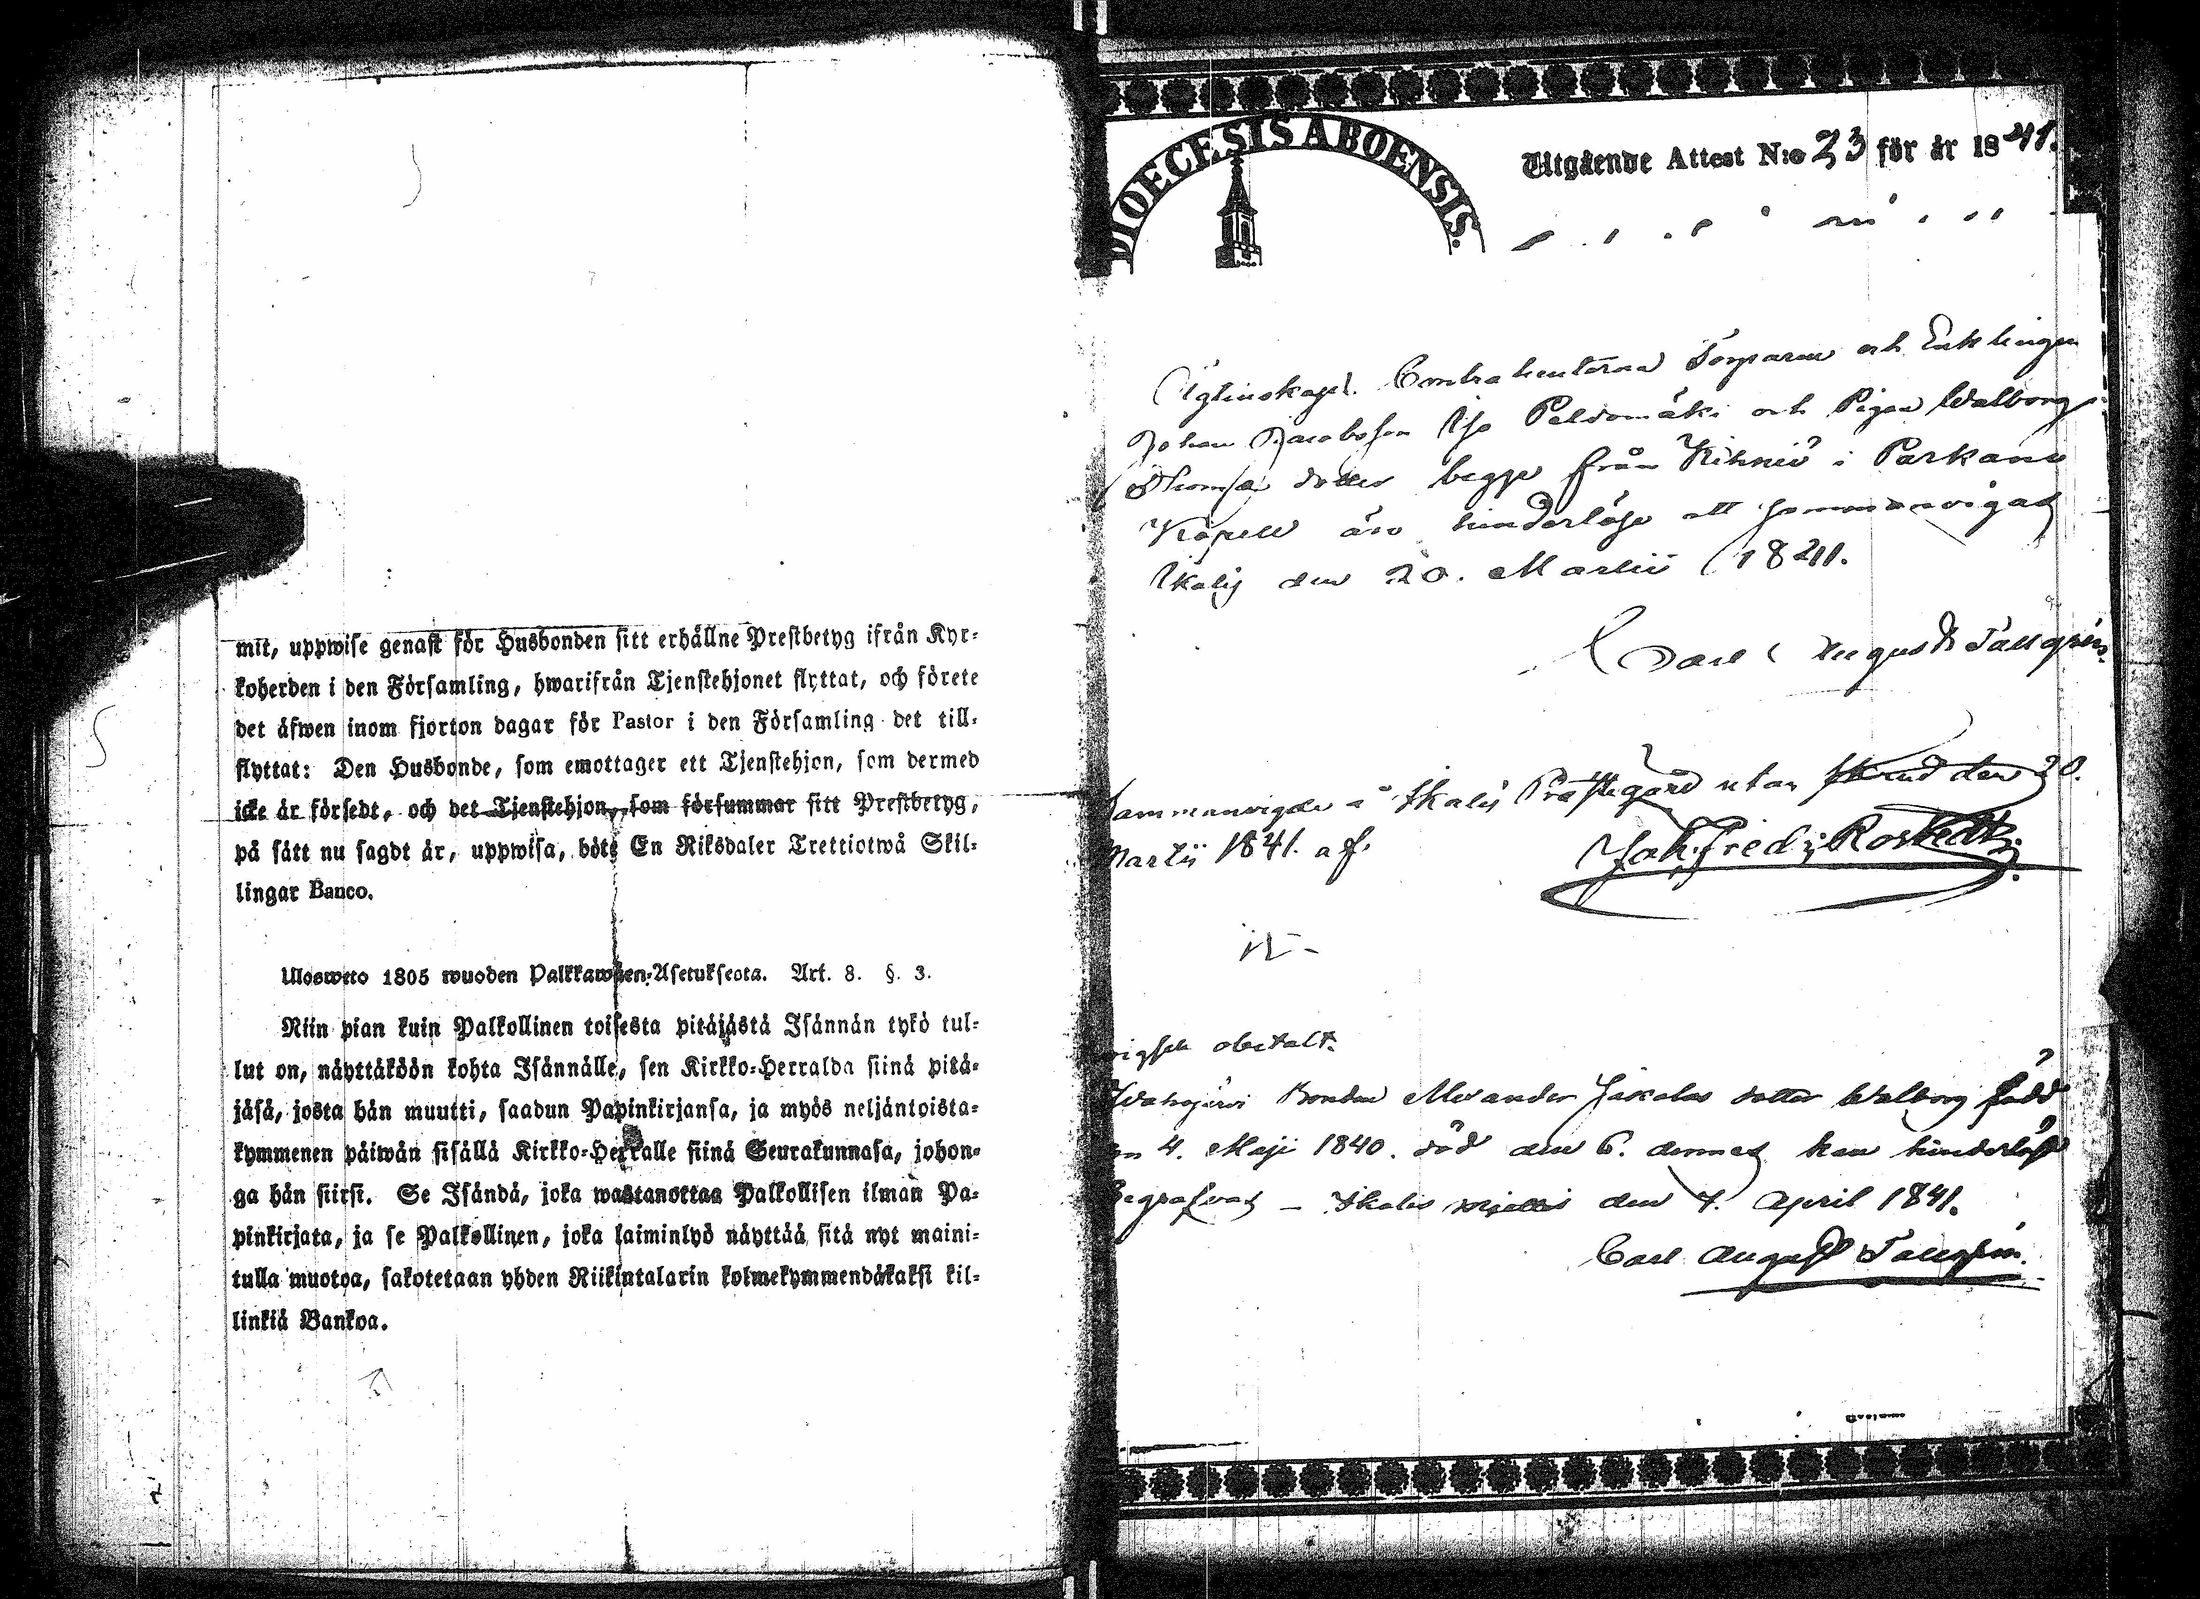 mit, uppwise genast för Husbonden sitt erhållne Prestbetyg ifrån Kyr-
koherden i den Församling, hwarifrån Tjenstehjonet flyttat, och förete
det äfwen inom fjorton dagar för Pastor i den Församling det till-
flyttat: Den Husbonde, som emottager ett Tjenstehjon, som dermed
icke är försedt, och det Tjenstehjon, som försummar sitt Prestbetyg,
på sätt nu sagdt är, uppwisa, böte En Riksdaler Trettiotwå Skil-
lingar Banco.
Ulosweto 1805 wuoden Palkkawäen-Asetuksesta. Art. 8. §. 3.
Niin pian kuin Palkollinen toisesta pitäjästä Isännän tykö tul-
lut on, näyttäköön kohta Isännälle, sen Kirkko-Herralda siinä pitä-
jäsä, josta hän muutti, saadun Papinkirjansa, ja myös neljäntoista-
kymmenen päiwän sisällä Kirkko-Herralle siinä Seurakunnasa, johon-
ga hän siirsi. Se Isändä, joka wastanottaa Palkollisen ilman Pa-
pinkirjata, ja se Palkollinen, joka laiminlyö näyttää sitä nyt maini-
tulla muotoa, sakotetaan yhden Riikintalarin kolmekymmendäkaksi kil-
linkiä Bankoa.
DIOECESIS ABOENSIS.
Utgående Attest N:o 23 för år 1841.
Contrahenterna Torparen och Enklingen
Johan Jacobsson Peldomäki och Pigan Walborg
Thomae dotter begge från Kihniö i Parkano
Kapell äro hinderlöse att sammanvigas
Ikalis den 20. Martii 1841.
Carl August Tallgrén.
Sammanvigde å Ikalis Prästegård utan den 20.
Martii 1841. af.
Joh. Fred. Rostedt.
obetalt.
Wahojärvi Bonden Alexander Jaskolas dotter Walborg född
den 4. Maji 1840. död den 6. dennes kan hinderlöst
Begrafvas Ikalis den 7. April 1841.
Carl August Tallgrén.